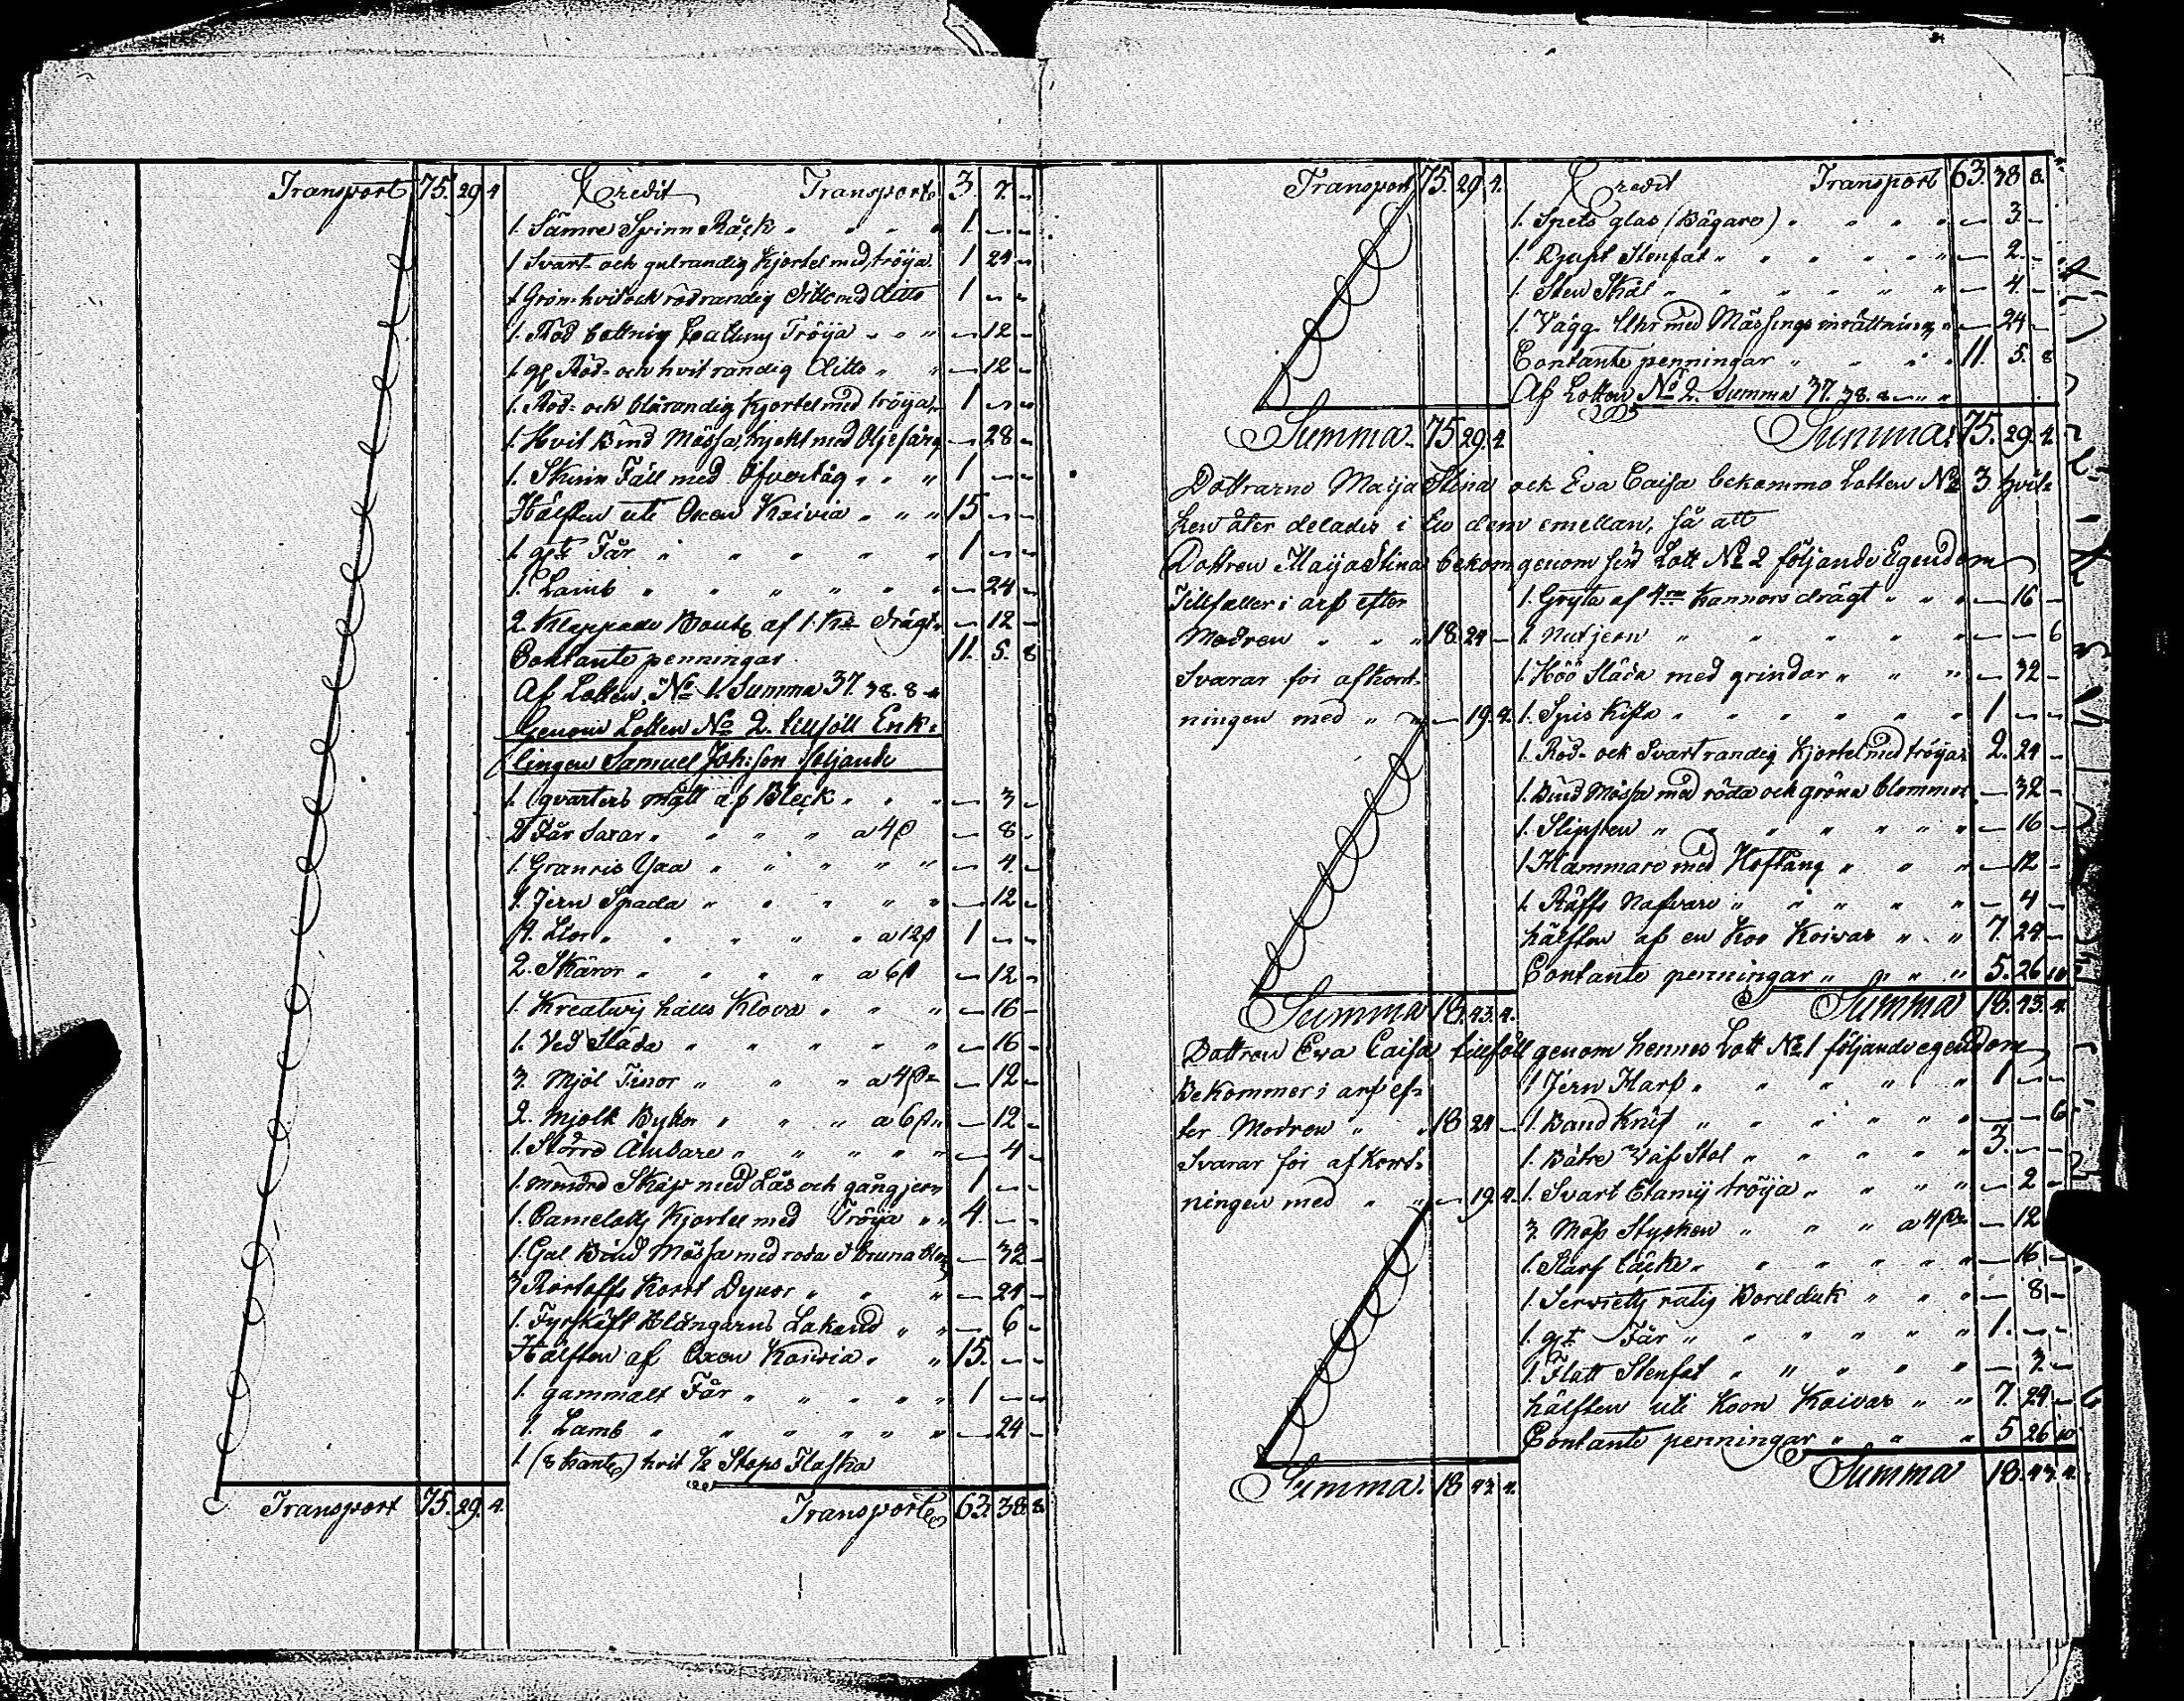 Transport 75. 29 4
Credit Transport 3. 7. "
1. Sämre Spinn Råck " " " 1 — "
1 Svart- och gulrandig Kjortel med tröija. 1 24 "
1 Grön- hvit och rödrandig ditto med ditto 1 " "
1. Röd bottnig Cattuns Tröija " " " — 12 —
1. gl Röd- och hvit randig ditto " " — 12 —
1. Röd- och blårandig Kjortel med tröija 1 " "
1. Hvit Bind Mössa, tryckt med Oljefärg — 28 —
1. Skinn Fäll med Öfvertåg " " " 1 — —
Hälften uti Oxen Koivia " " " 15 — —
1. glt Får " " " " " 1 — —
1. Lamb " " " " " — 24 —
2. Klappade Boutg af 1. Kns drägt " — 12 —
Contante penningar 11. 5. 8
Af Lotten No 1. Summa 37. 38. 8
Genom Lotten No 2. tillföll Enk-
lingen Samuel Joh:son följande
1. qvarters mått af Bleck " " " — 3 —
2 Får Saxar " " " " a 4 β — 8 —
1. Granris Yxa " " " " " — 4. —
1. Jern Spada " " " " " — 12 —
4. Lior " " " " " a 12 β 1 — —
2. Skäror " " " " a 6 β — 12 —
1. Kreaturs hals Klova " " " — 16 —
1. Ved Släda " " " " " — 16 —
3. Mjöl Tinor " " " a 4 β — 12 —
2. Mjölk Byttor " " " a 6 β " — 12 —
1. Större Ämbare " " " " " — 4 —
1. mindre Skåp med Lås och gångjern 1 — —
1. Camelotts Kjortel med Tröija " " 4. — —
1. Gul Bind Mössa med röda & bruna blom — 32 —
3 Kort Dynor " " " — 24 —
1. Fyrskäft Blångarns Lakand " " — 6 —
Hälften af Oxen Koivia " " 15. — —
1. gammalt Får " " " " " 1 — —
1. Lamb " " " " " " — 24 —
1 (8 kantg) hvit 1/2 Stops Flaska
Transport 75. 29. 4.
Transport 63. 38. 8
Transport 75. 29. 4.
Credit Transport 63. 38 8.
1. Spets glas (Bägare) " " " " — 3 —
1. Djupt Stenfat " " " " " — 2. —
1. Sten Skål " " " " " " — 4. —
1. Vägg Uhr med Mässings inrättning " — 24 —
Contante penningar " " " " 11. 5. 8
Af Lotten No 2. Summa 37. 38. 8 " "
Summa. 75 29. 4.
Summa. 75. 29. 4.
Döttrarne Maija Stina och Eva Caisa bekommo Lotten No 3 hvil-
ken åter delades i tu dem emellan, så att
Dottren Maija Stina bekom genom sin Lott No 2 följande Egendom
Tillfaller i arf efter
Modren " " " 18. 24 —
Svarar för afkort-
ningen med " " — 19. 4.
1. Gryta af 4ra Kannors drägt " " " — 16 —
1. Nutjern " " " " " — — 6
1. Höö Släda med grindor " " " — 32 —
1. Spis Kista " " " " " " 1 — —
1. Röd- och Svart randig Kjortel med tröija 2. 24 —
1. Bind Mössa med röda och gröna blommor — 32 —
1. Slipsten " " " " " " " — 16 —
1. Hammare med Hoftång " " " — 12 —
1. Räffs Nafvare " " " " " — 4 —
hälften af en Koo Koivas " " " 7. 24 —
Contante penningar " " " " 5. 26 10
Summa 18. 43. 4.
Summa 18. 43. 4.
Dottren Eva Caisa tillföll genom hennes Lott No 1 följande egendom
Bekommer i arf ef-
ter Modren " " 18 24 —
Svarar för afkort-
ningen med " " — 19. 4.
1 Jern Harf " " " " " " 1 — —
1. Band Knif " " " " " " — — 6
1. Bätre Väf Stol " " " " " 3. — —
1. Svart Etamij tröija " " " " — 2 —
3. Stycken " " " a 4 β — 12
1. " " " " " — 16 —
1. Serviettg ratig Bordduk " " " — 8 —
1. glt Får " " " " " " 1. — —
1. Flatt Stenfat " " " " " — 3. —
hälften uti Koon Koivas " " 7. 24 —
Contante penningar " " " 5 26 10
Summa. 18 43. 4.
Summa 18. 43. 4.